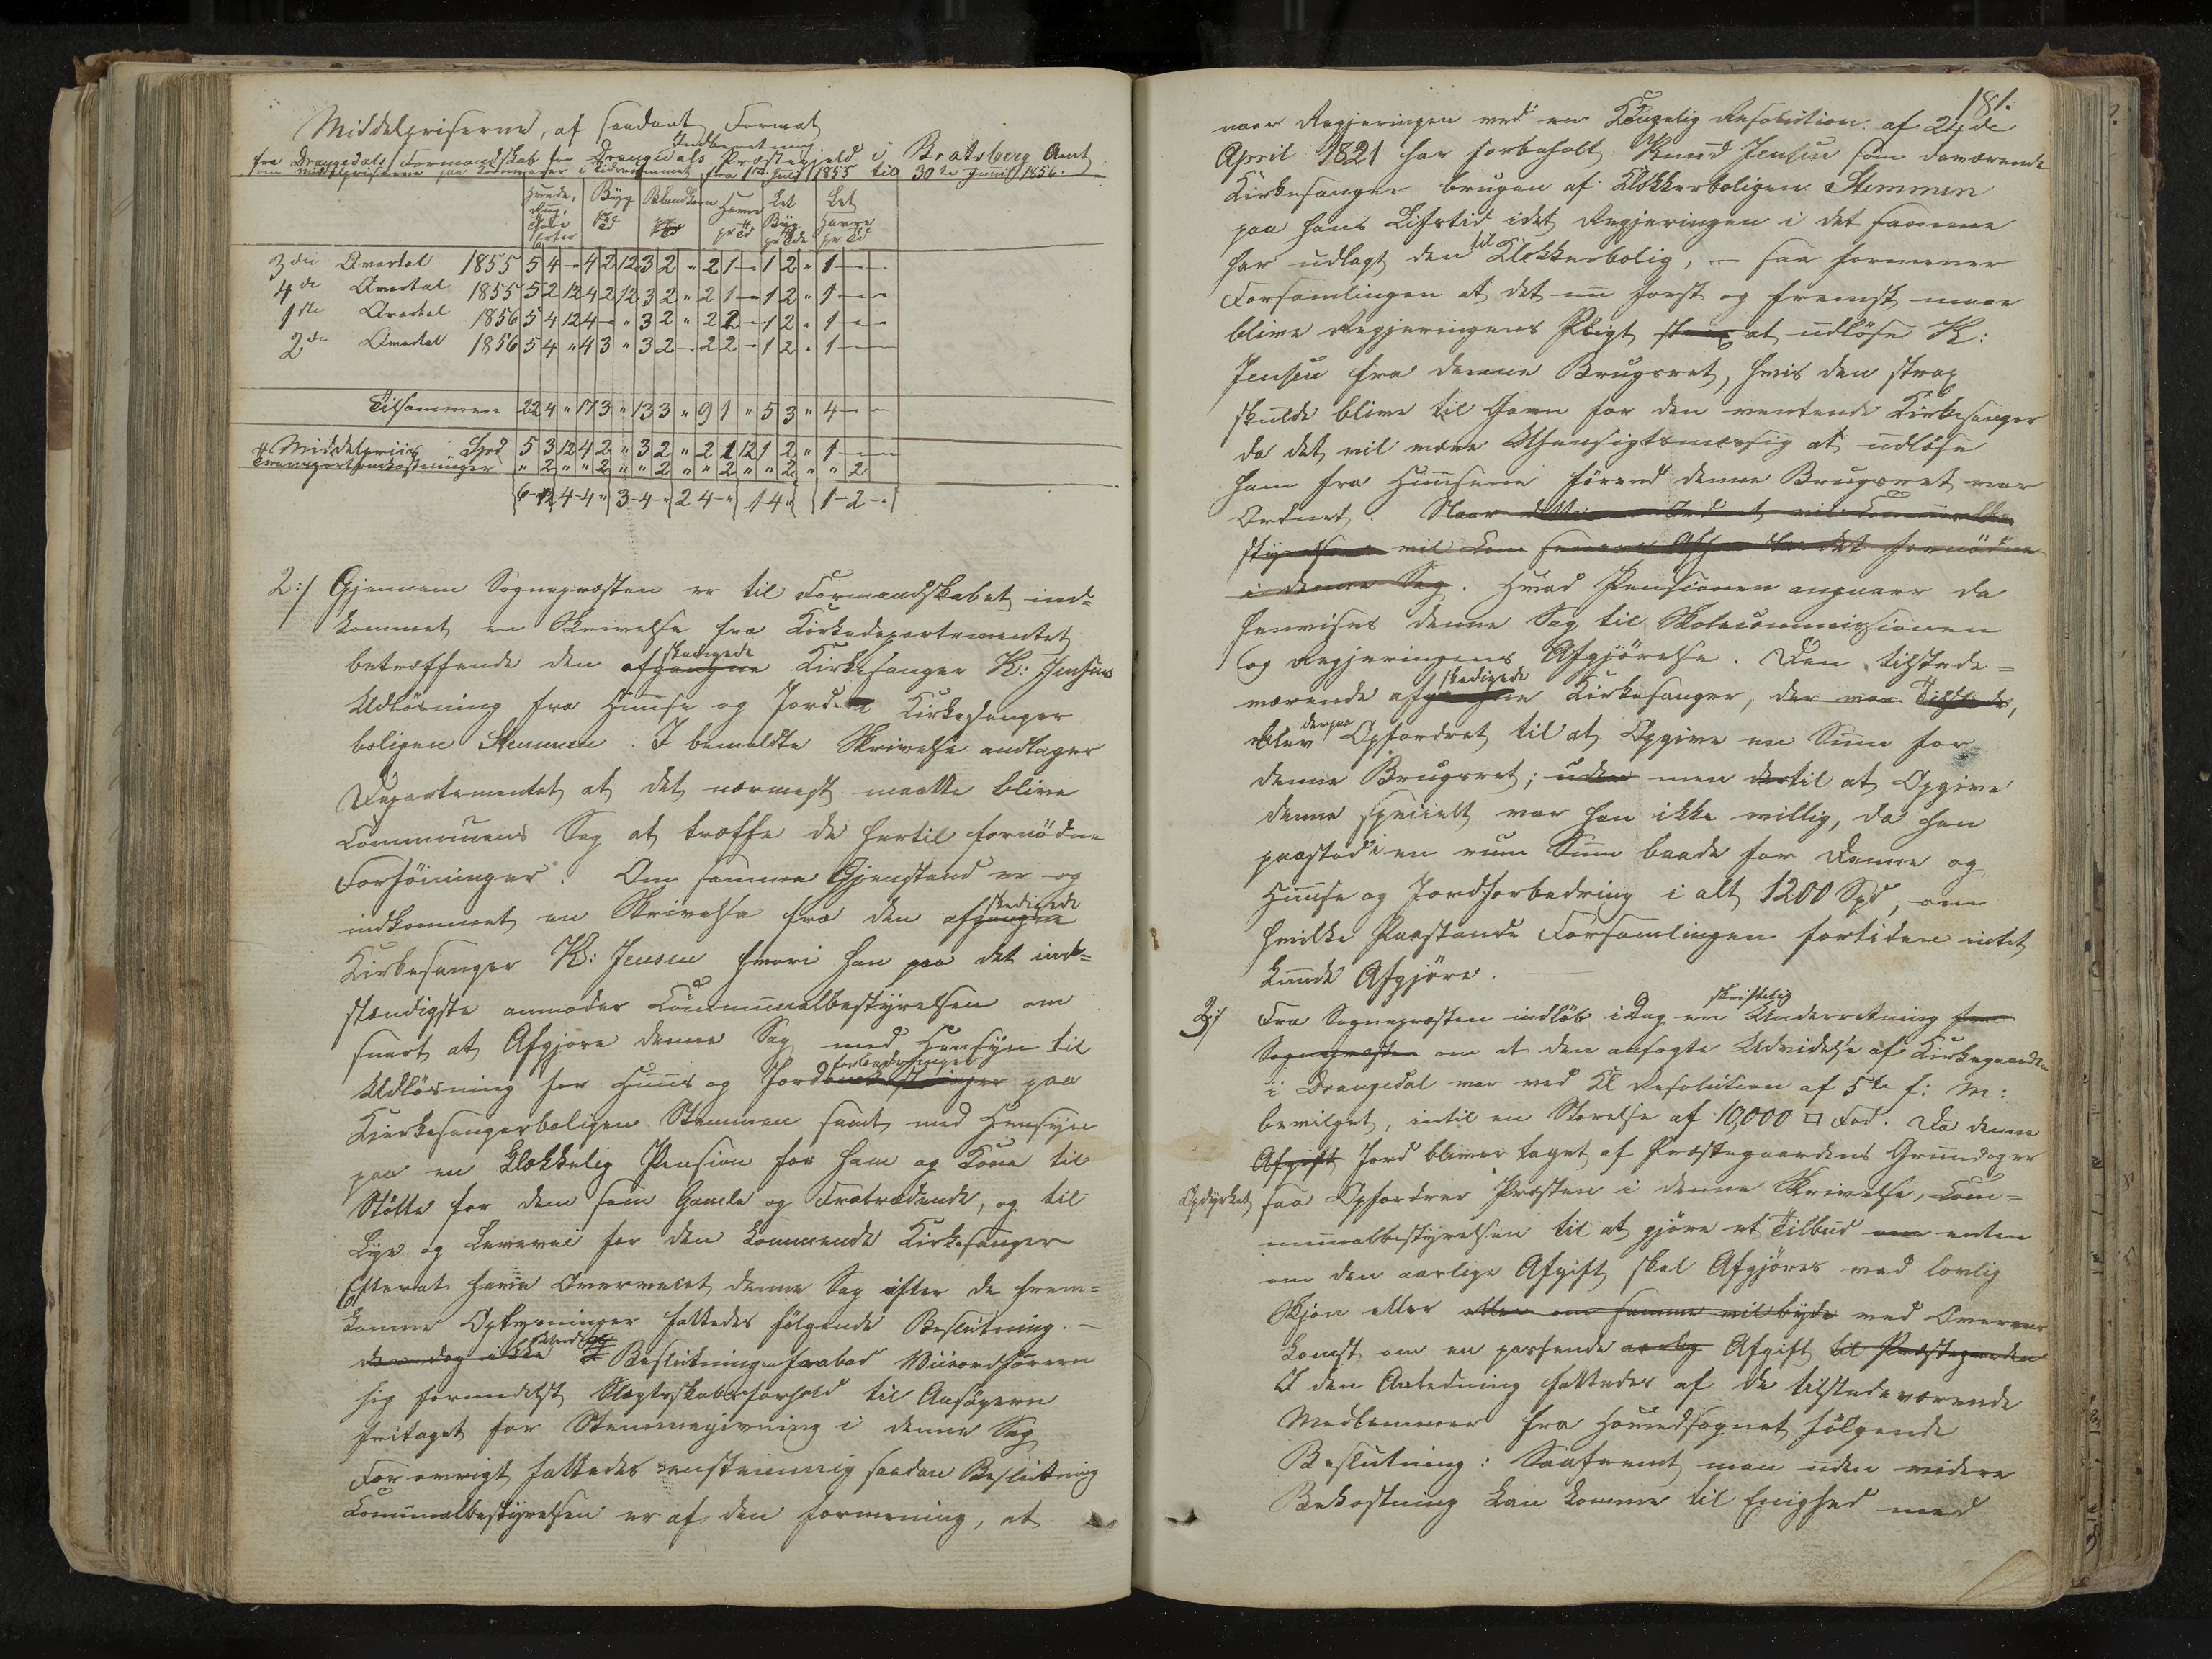 Middelpriserne, af saadant Format
Indberetning
fra Drangedals Formandskab for Drangedals Præstegjeld i Bratsberg Amt
om Middelpriserne paa Kornvarer i Tidsrummet fra 1ste Juli 1855 til 30te Junii 1856.
Hvede, Rug, Erter | Byg pr Td | Blandkorn pr Td | Havre pr Td | Let Byg pr Tde | Let Havre pr Td
3die Qvartal 1855 5 4 - 4 2 12 3 2 " 2 1 - 1 2 " 1 - -
4de Qvartal 1855 5 2 12 4 2 12 3 2 " 2 1 - 1 2 " 1 - -
1ste Qvartal 1856 5 4 12 4 - " 3 2 " 2 2 - 1 2 " 1 - -
2det Qvartal 1856 5 4 " 4 3 " 3 2 - 2 2 - 1 2 " 1 - -
Tilsammen 22 4 " 17 3 " 13 3 " 9 1 " 5 3 " 4 - -
Middelpriis Spd 5 3 12 4 2 " 3 2 " 2 1 12 1 2 " 1 - -
Transportomkostninger " 2 " " 2 " " 2 " " 2 " " 2 " " 2
6 - 12 4 - 4 " 3 - 4 " 2 4 - " 1 4 " 1 - 2 - "
2:/ Gjennem Sognepræsten er til Formandskabet ind=
kommet en Skrivelse fra Kirkedepartementet
skedigede
betræffende den afgangne Kirkesanger K: Jensens
Udløsning fra Huuse og Jord Kirkesanger
boligen Stemmen. I bemeldte Skrivelse antages
Departementet at det nærmest maatte blive
Communens Sag at træffe de hertil fornødne
Forføininger. Om samme Gjenstand er og
skedigede
indkommet en Skrivelse fra den afgangne
Kirkesanger K: Jensen hvori han paa det ind=
stændigste anmoder Communalbestyrelsen om
snart at Afgjøre denne Sag med Hensyn til
forbedringer
Udløsning for Huus og Jord paa
Kirkesangerboligen Stemmen samt med Hensyn
paa en Klækkelig Pension for ham og Kone til
Støtte for dem som Gamle og Fratrædende, og til
Lye og Levevei for den kommende Kirkesanger
Efterat have Overveiet denne Sag efter de frem=
komne Oplysninger fattedes følgende Beslutning. -
der dog ikke Beslutningen frabad Viceordføreren
sig formedelst Slægtskabsforhold til Ansøgeren
fritaget for Stemmegivning i denne Sag
For øvrigt fattedes eenstemmig saadan Beslutning
Communalbestyrelsen er af den formening, at
181.
naar Regjeringen ved en Kongelig Resolution af 24de
April 1821 har forbeholt Knud Jensen som daværende
Kirkesanger brugen af Klokkerboligen Stemmen
paa hans Lifstid idet Regjeringen i det samme
til
har udlagt den Klokkerbolig, - saa formener
Forsamlingen at det nu først og fremst maae
blive Regjeringens Pligt strax at udløse K:
Jensen fra denne Brugsret, hvis den strax
skulde blive til Gavn for den ventende Kirkesanger
da det vil være Uhensigtsmæssig at udløse
ham fra Huusene førend denne Brugsret var
Ordnet. Naar dette er Ordnet vil Communalbe
styrelsen vil det fornødne
i denne Sag. Hvad Pensionen angaaer da
henvises denne Sag til Skolecommissionen
og Regjeringens Afgjørelse. Den tilstede=
skedigede
værende afgangne Kirkesanger, der var Tilstede,
derpaa
blev Opfordret til at Opgive en Sum for
denne Brugsret; uden men dertil at Opgive
denne specielt var han ikke willig, da han
paastod en rum Sum baade for Denne og
Huuse og Jordforbedring i alt 1200 Spd, om
hvilke Paastande Forsamlingen fortiden intet
kunde Afgjøre.
skriftelig
3:/ Fra Sognepræsten indløb i Dag en Underretning fra
Sognepræsten om at den ansøgte Udvidelse af Kirkegaarden
i Drangedal var ved Kl Resolution af 5te f: M:
bevilget, intil en Størelse af 10,000 □ Fod. Da denne
Afgift Jord bliver taget af Præstegaardens Grund og er
Opdyrket saa Opfordrer Præsten i denne Skrivelse, Com=
munalbestyrelsen til at gjøre et Tilbud om enten
om den aarlige Afgift skal Afgjøres ved lovlig
Skjøn eller ellers om samme vil byde ved Overens
komst om en passende aarlig Afgift til Præstegaarden
I den Anledning fattedes af de tilstedeværende
Medlemmer fra Hovedsognet følgende
Beslutning: Saafremt man uden videre
Bekostning kan komme til Enighed med